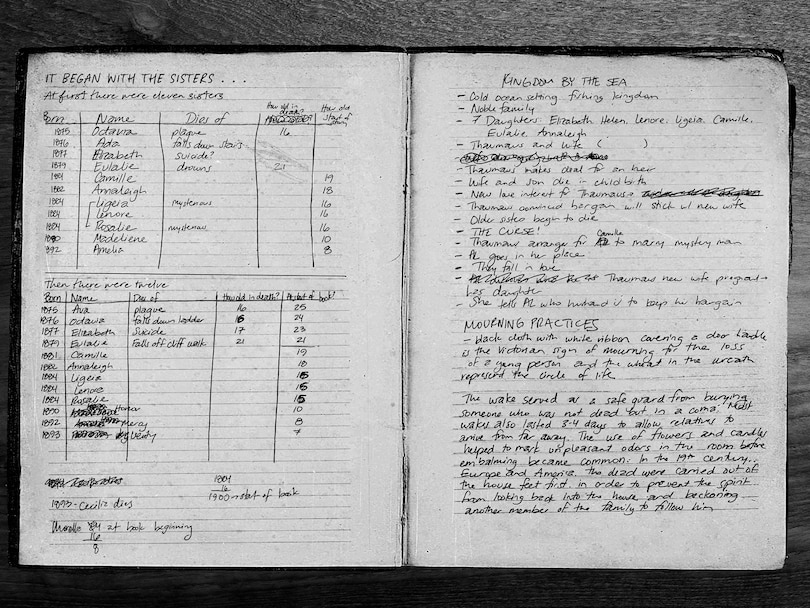 IT BEGAN WITH THE SISTERS . . .
At first there were eleven sisters
Born Name Dies of How old in death? How old start of story
1875 Octavia plague 16
1876 Ada falls down stairs
1877 Elizabeth suicide?
1879 Eulalie drowns 21
1881 Camille 19
1882 Annaleigh 18
1884 Ligeia mysterious 16
1884 Lenore 16
1884 Rosalie mysterious 16
1890 Madeliene 10
1892 Amelia 8
Then there were twelve
Born Name Dies of How old in death? At start of book?
1875 Ava plague 16 25
1876 Octavia falls down ladder 24
1877 Elizabeth Suicide 17 23
1879 Eulalie Falls off cliff walk 21 21
1881 Camille 19
1882 Annaleigh 18
1884 Ligeia 15
1884 Lenore 15
1884 Rosalie 15
1890 Honor 10
1892 Mercy 8
1893 Verity 7
1884
16
1900 - start of book
1893 - Cecilia dies
at book beginning
16
8
KINGDOM BY THE SEA
- Cold ocean setting fishing kingdom
- Noble family
- 7 Daughters: Elizabeth, Helen, Lenore, Ligeia, Camille,
Eulalie, Annaleigh
- Thaumaus and wife ( )
- Thaumaus makes deal for an heir
- Wife and son die in childbirth
- New love interest for Thaumaus
- Thaumaus convinced bargain will stick w/ new wife
- Older sisters begin to die
- THE CURSE!
Camille
- Thaumaus arranges for to marry mystery man
- AL goes in her place
- They fall in love
- Thaumaus new wife pregnant
has daughter
- She tells AL who husband is to keep his bargain
MOURNING PRACTICES
- black cloth with white ribbon covering a door handle
is the Victorian sign of mourning for the loss
of a young person and the wheat in the wreath
represent the circle of life
The wake served as a safe guard from burying
someone who was not dead but in a coma. Most
wakes also lasted 3-4 days to allow relatives to
arrive from far away. The use of flowers and candles
helped to mask unpleasant odors in the room before
embalming became common. In the 19th century
Europe and America, the dead were carried out of
the house feet first in order to prevent the spirit
from looking back into the house and beckoning
another member of the family to follow him